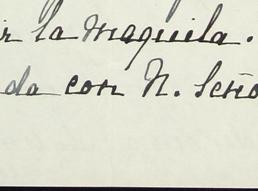 ir la maquila.
da con N. Seño